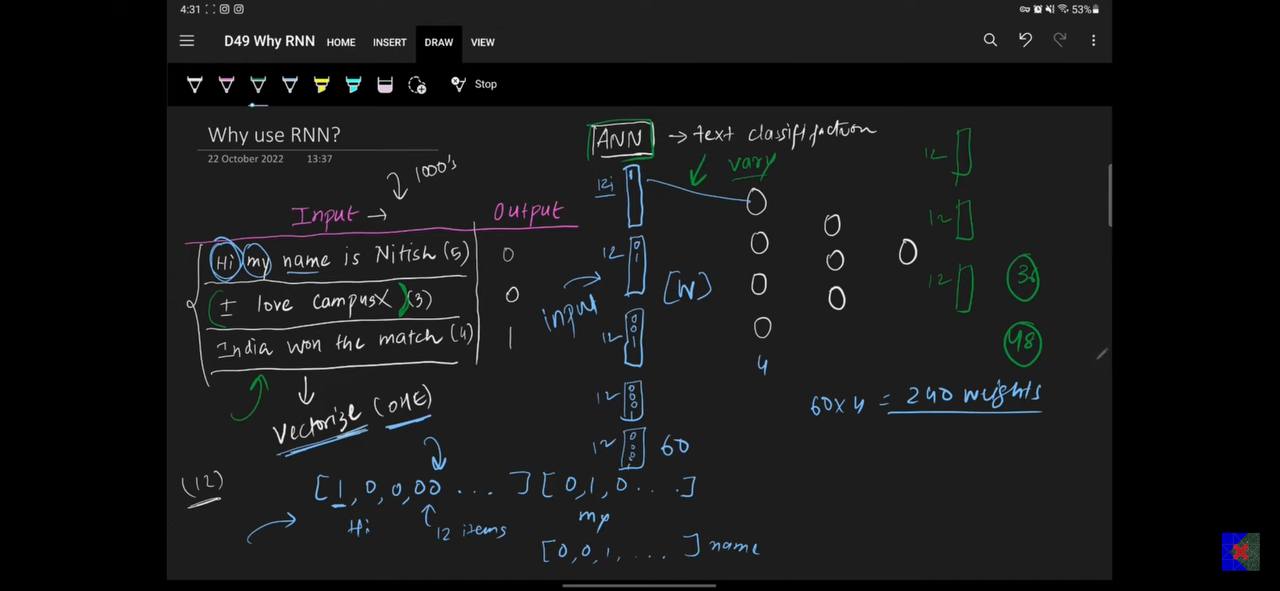 4:31
53%
D49 Why RNN
HOME
INSERT
DRAW
VIEW
Stop
Why use RNN?
22 October 2022 13:37
1000's
Input → Output
Hi my name is Nitish (5) 0
I love campusX (3) 0
India won the match (4) 1
Vectorize (OHE)
(12)
[1, 0, 0, 00 ... ] [0, 1, 0 ... ]
Hi
12 items
my
[0, 0, 1, .... ] name
ANN → text classification
vary
12i
12
12
12
12
60
input
[W]
4
12
12
12
36
48
60 x 4 = 240 weights